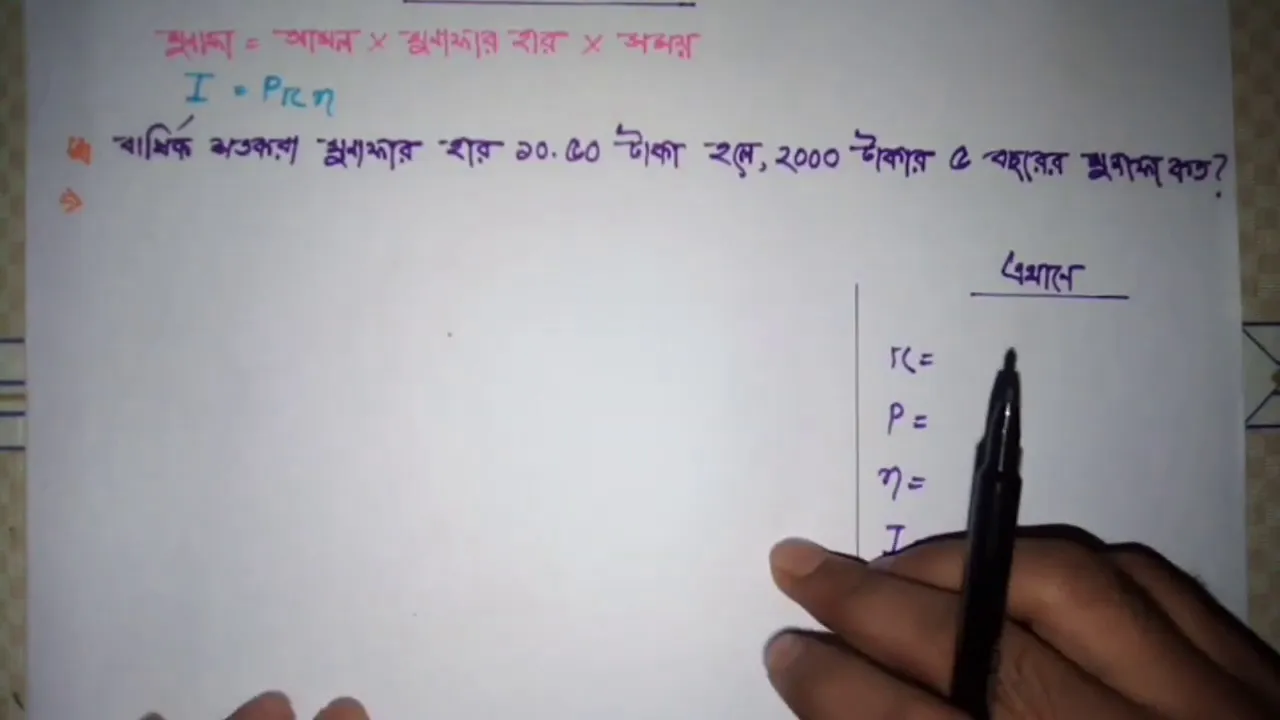 মুনাফা = আসল × মুনাফার হার × সময়
I = Prn
বার্ষিক শতকরা মুনাফার হার ১০.৫০ টাকা হলে, ২০০০ টাকার ৫ বছরের মুনাফা কত?
এখানে
r =
P =
n =
I